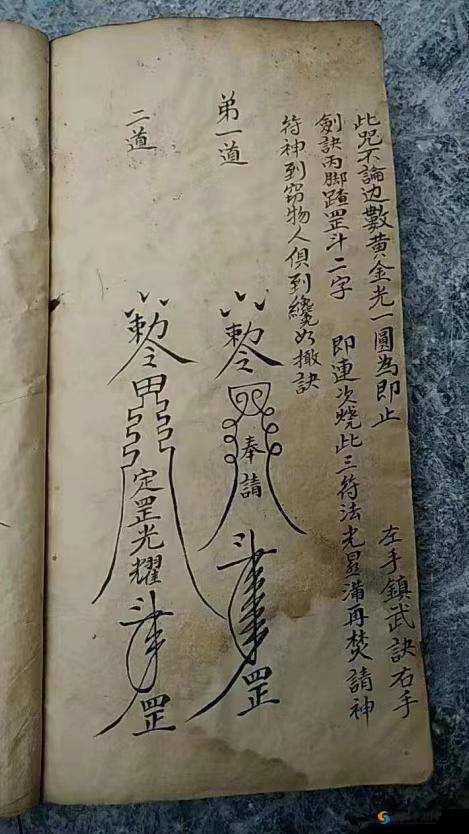 此咒不論边數黃金光一圓為即止　左手鎮武訣右手
劍訣丙脚踏罡斗二字　即連次燒此三符法光显满再焚請神
符神到窃物人俱到纔好撤訣
弟一道
勅令
奉請
罡
二道
勅令
定罡光耀
罡